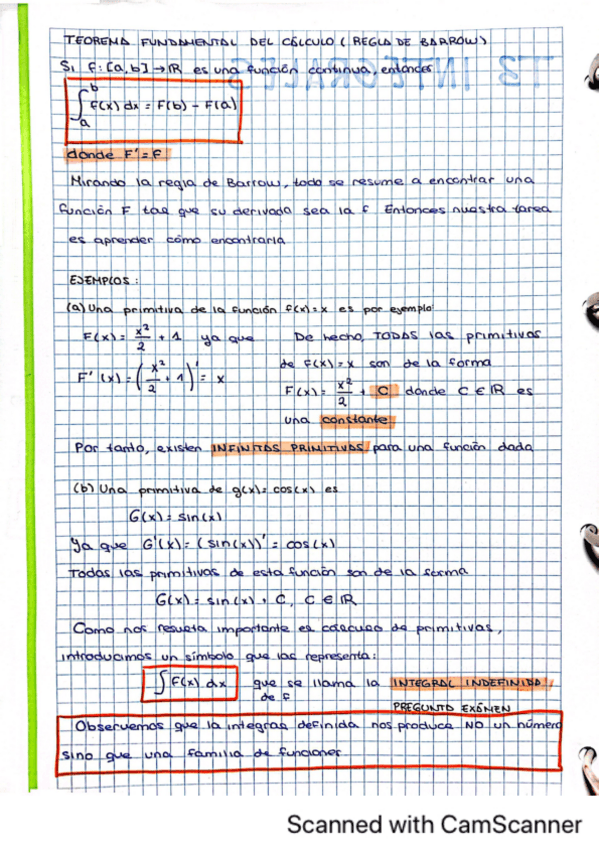 TEOREMA FUNDAMENTAL DEL CÁLCULO (REGLA DE BARROW)
Si f: [a,b] → ℝ es una función continua, entonces
∫_a^b f(x) dx = F(b) - F(a)
donde F' = f
Mirando la regla de Barrow, todo se resume a encontrar una
función F tal que su derivada sea la f Entonces nuestra tarea
es aprender cómo encontrarla
EJEMPLOS:
(a) Una primitiva de la función f(x)=x es por ejemplo
F(x) = x²/2 + 1 ya que
F'(x) = (x²/2 + 1)' = x
De hecho, TODAS las primitivas
de f(x) = x son de la forma
F(x) = x²/2 + C donde C ∈ ℝ es
una constante
Por tanto, existen INFINITAS PRIMITIVAS para una función dada
(b) Una primitiva de g(x) = cos(x) es
G(x) = sin(x)
Ya que G'(x) = (sin(x))' = cos(x)
Todas las primitivas de esta función son de la forma
G(x) = sin(x) + C, C ∈ ℝ
Como nos resulta importante el cálculo de primitivas,
introducimos un símbolo que las representa:
∫ f(x) dx que se llama la INTEGRAL INDEFINIDA
de f
PREGUNTA EXÁMEN
Observemos que la integral definida nos produce NO un número
sino que una familia de funciones
Scanned with CamScanner